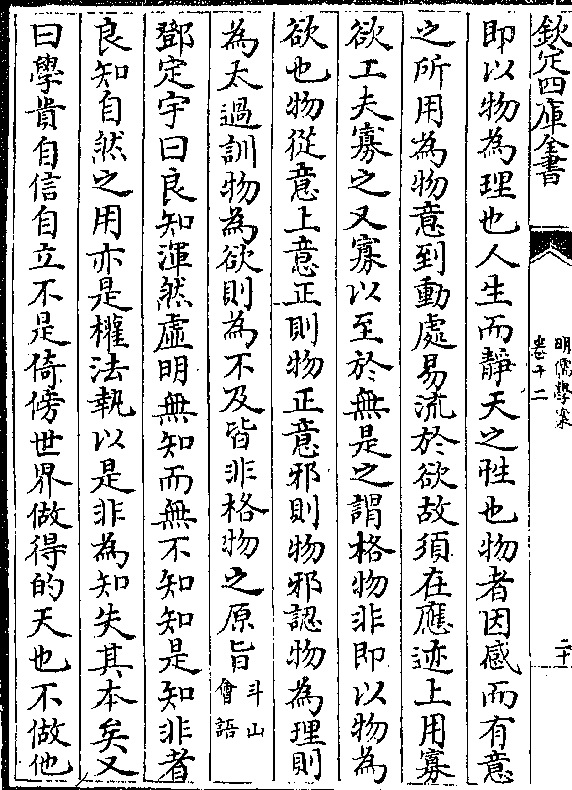 欽定四庫全書
明儒學案
卷十二
二十
即以物為理也人生而靜天之性也物者因感而有意
之所用為物意到動處易流於欲故須在應迹上用寡
欲工夫寡之又寡以至於無是之謂格物非即以物為
欲也物從意上意正則物正意邪則物邪認物為理則
為太過訓物為欲則為不及皆非格物之原旨斗山會語
鄧定宇曰良知渾然虛明無知而無不知知是知非者
良知自然之用亦是權法執以是非為知失其本矣又
曰學貴自信自立不是倚傍世界做得的天也不做他